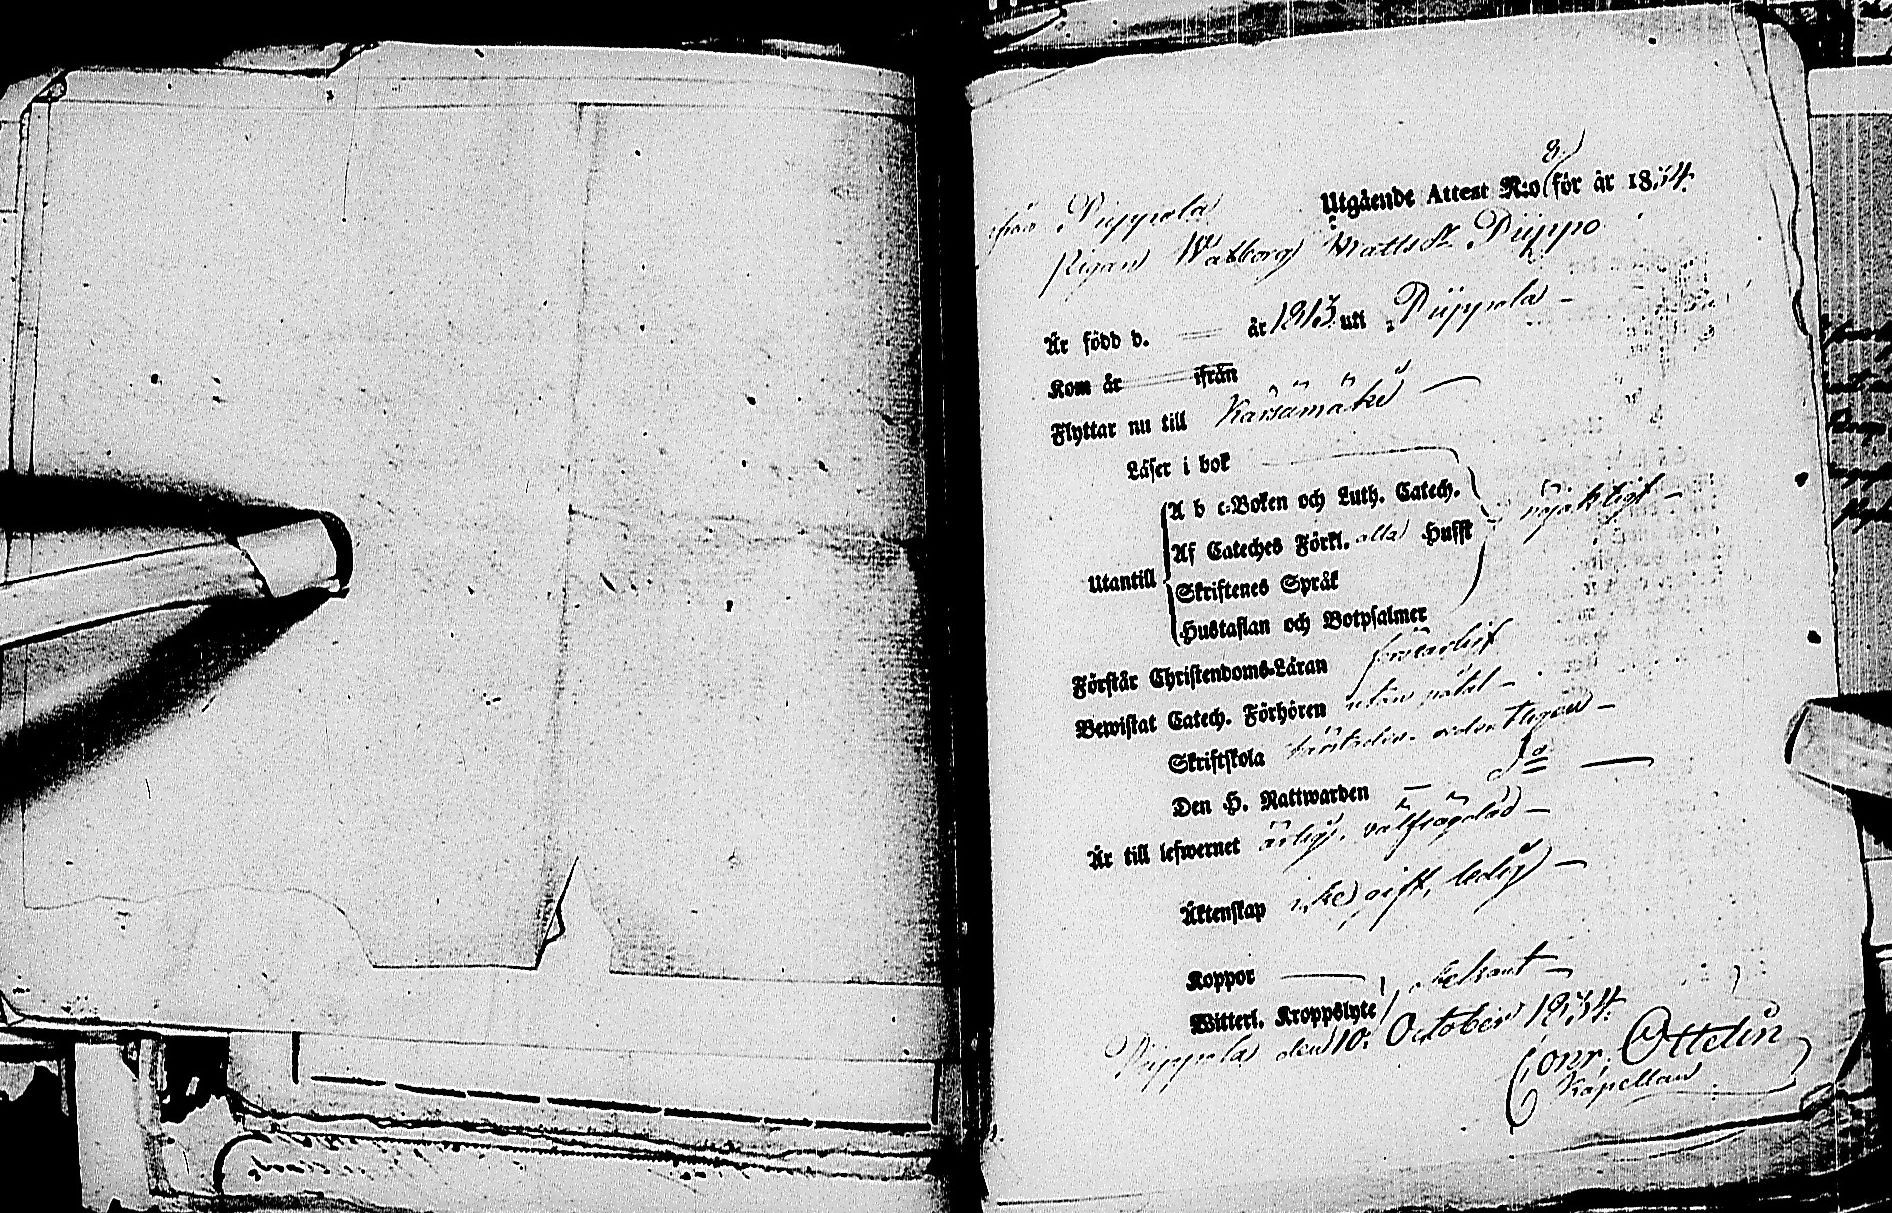 Utgående Attest N:o 8 för år 1834.
från Piippola
Pigan Walborg Mattsdr Piippo
Är född d. — år 1813 uti Piippola —
Kom år — ifrån
Flyttar nu till Kärsämäki —
Läser i bok
Utantill
A b c-Boken och Luth. Catech.
Af Cateches Förkl. alla Husst
nöjaktigt —
Skriftenes Språk
Hustaflan och Botpsalmer
Förstår Christendoms-Läran försvarligt
Bewistat Catech. Förhören utan påtal —
Skriftskola ordentligen —
Den H. Nattwarden — do —
Är till lefwernet ärligt, välfrägdad —
Äktenskap icke gift, ledig —
Koppor —
Witterl. Kroppslyte
Piippola den 10: October 1834.
Conr. Ottelin
Kapellan